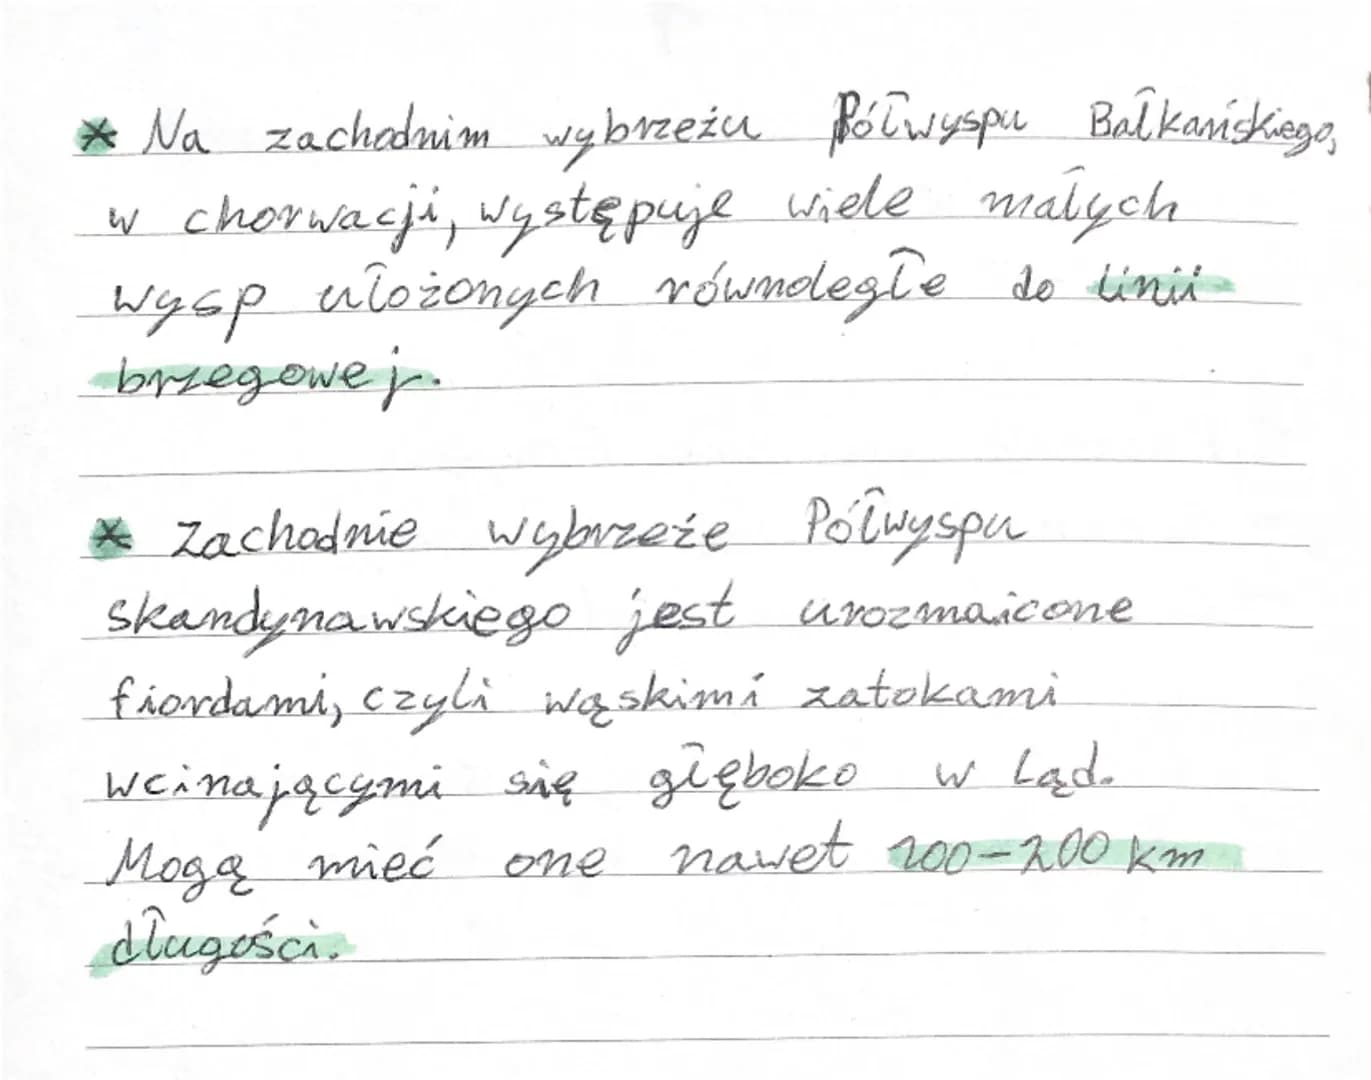 * Na zachodnim wybrzeżu Półwyspu Bałkańskiego,
w chorwacji, występuje wiele małych
wysp ułożonych równolegle do linii
brzegowej.
* Zachodnie wybrzeże Półwyspu
skandynawskiego jest urozmaicone
fiordami, czyli wąskimi zatokami
wcinającymi się głęboko w ląd.
Mogą mieć one nawet 100-200 km
długości.